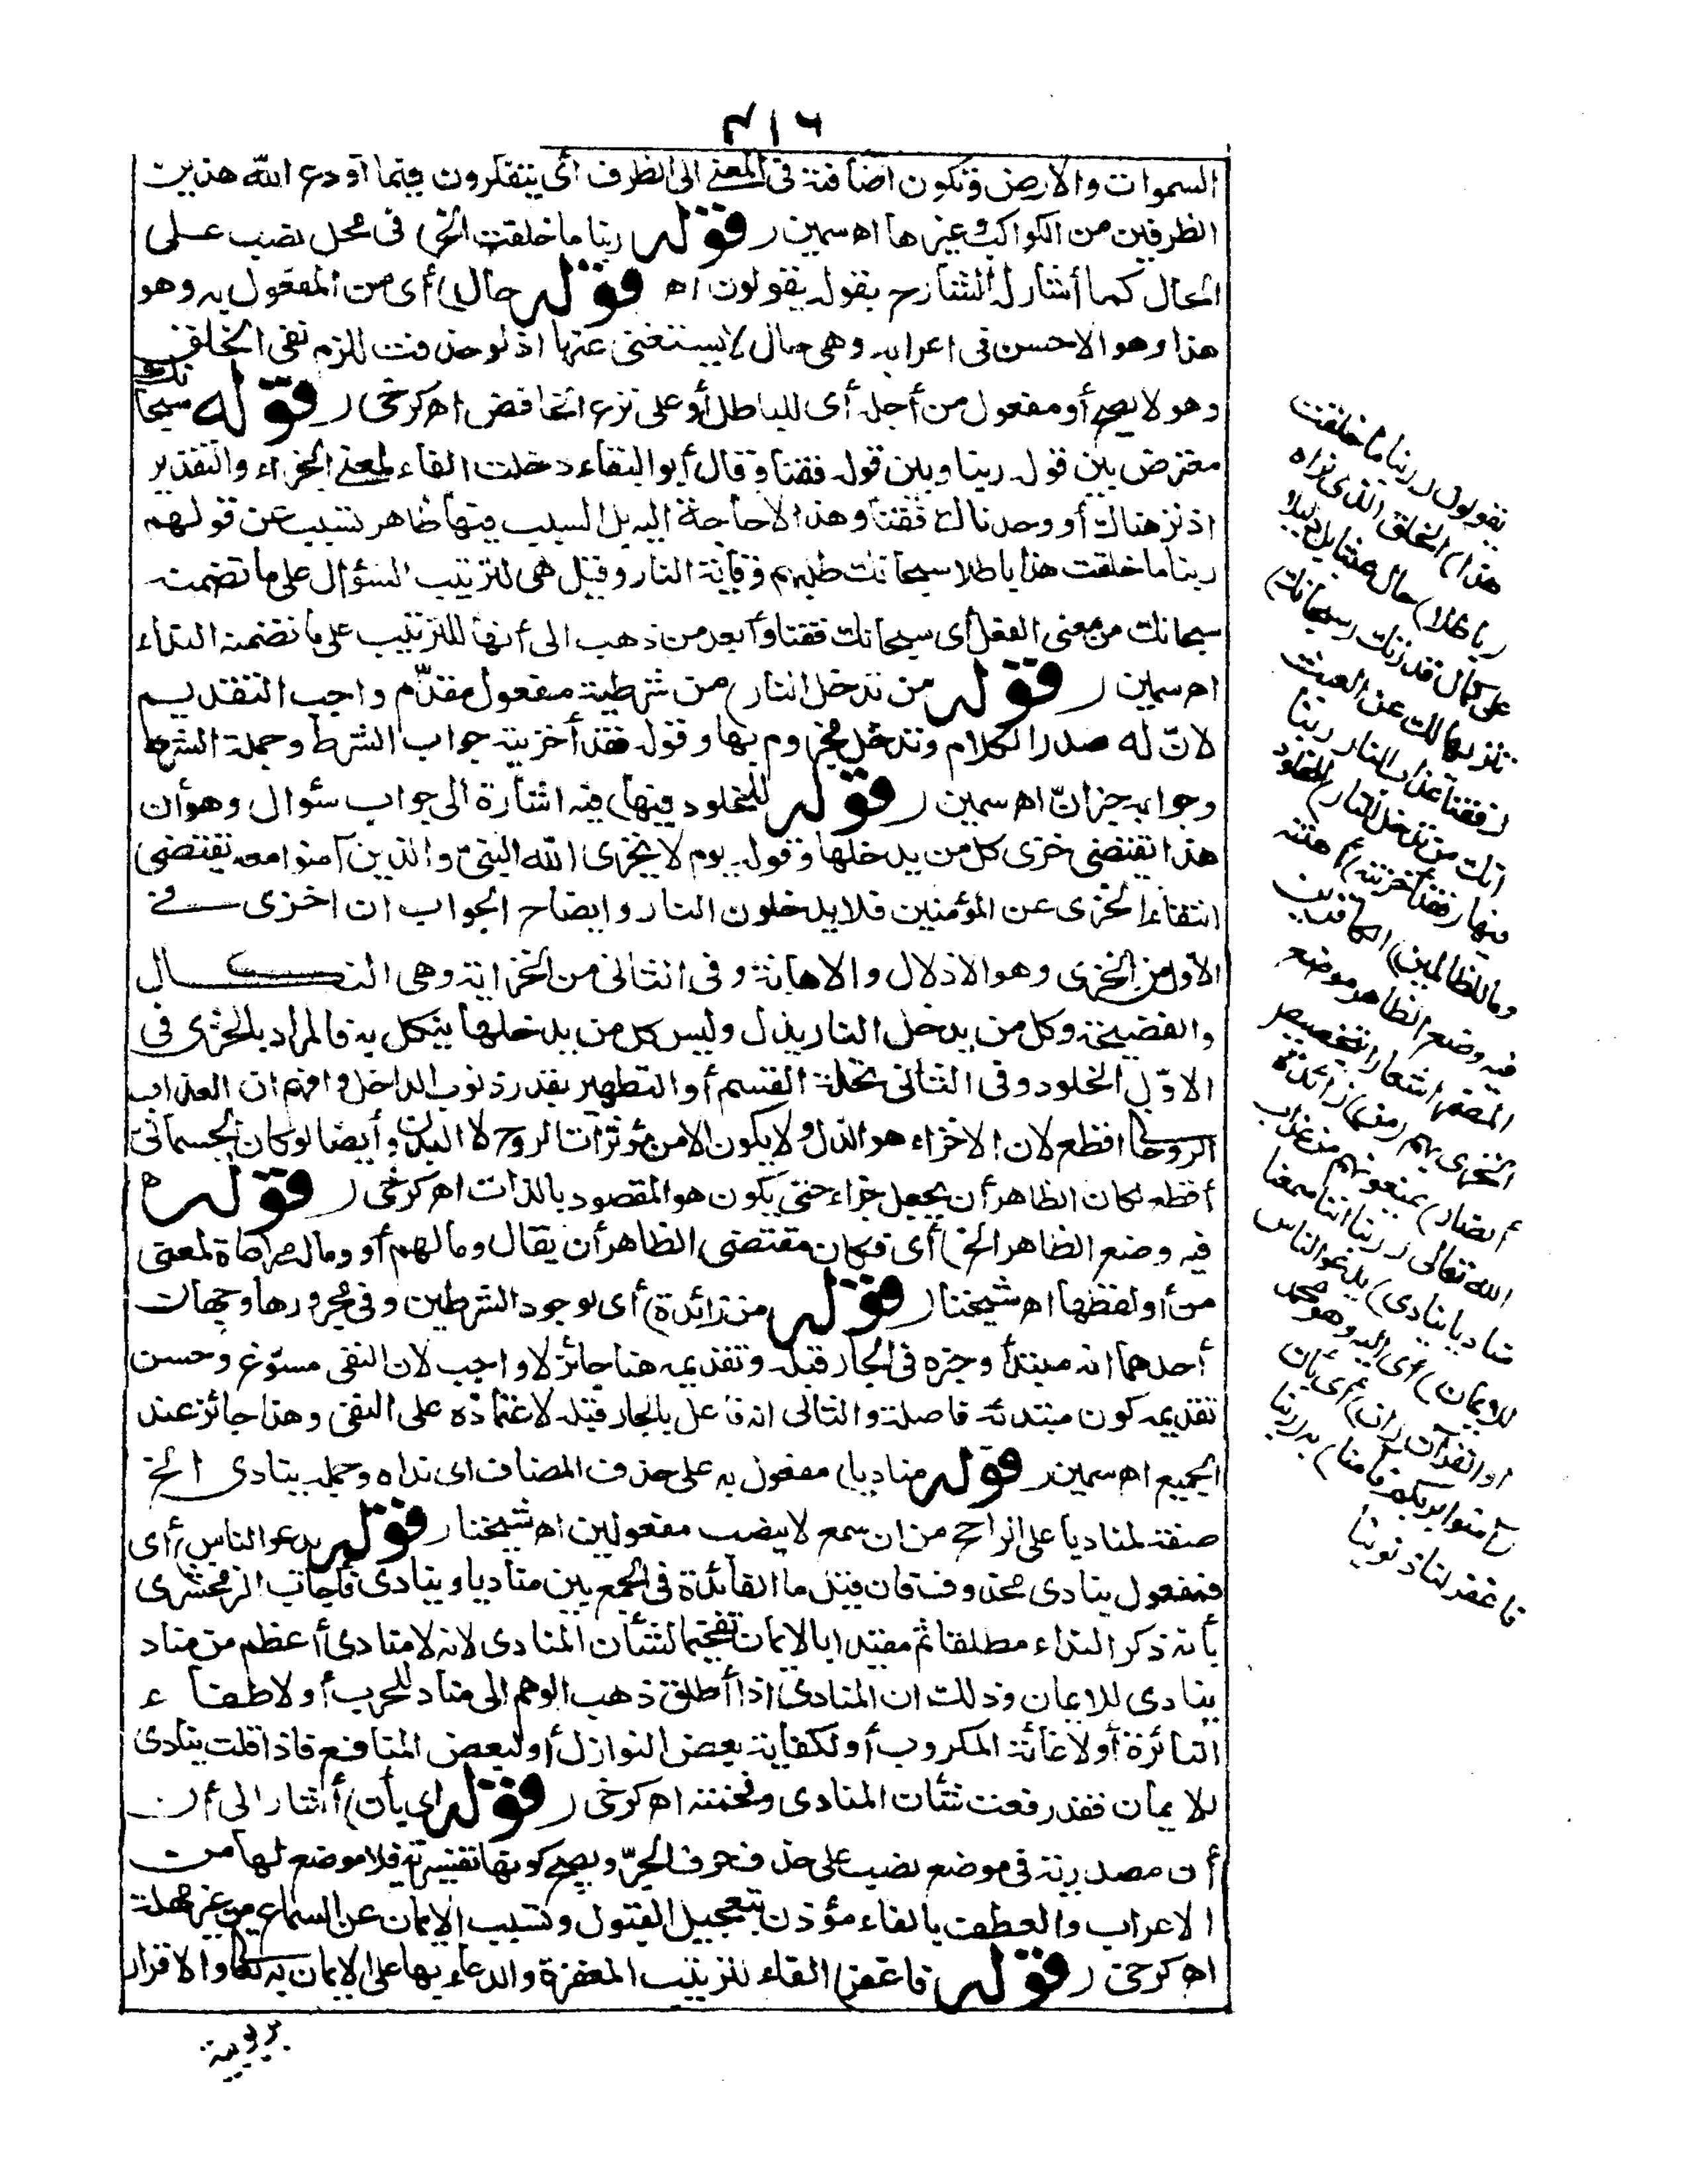 ٤١٦
السموات والارض فتكون اضافته فى المعنى الى الظرف أى يتفكرون فيما أودع الله هذين
الظرفين من الكواكب وغيرها اه سمين (قوله ربنا ما خلقت الخ) فى محل نصب على
الحال كما أشار له الشارح بقوله يقولون اه قوله حال) أى من المفعول به وهو
هذا وهو الاحسن فى اعرابه وهى حال لا يستغنى عنها اذ لو حذفت للزم نفى الخلق
وهو لا يصح أو مفعول من أجله أى للباطل أو على نزع الخافض اه كرخى (قوله سبحانك
معترض بين قوله ربنا وبين قوله فقنا وقال أبو البقاء دخلت الفاء لمعنى الجزاء والتقدير
اذ نزهناك أو وحدناك فقنا وهذا لا حاجة اليه بل السبب فيها ظاهر تسبب عن قولهم
ربنا ما خلقت هذا باطلا سبحانك طلبهم وقاية النار وقيل هى لترتيب السؤال على ما تضمنه
سبحانك من معنى الفعل أى سبحانك فقنا وأبعد من ذهب الى أنها للترتيب على ما تضمنه النداء
اه سمين (قوله من تدخل النار) من شرطية مفعول مقدّم واجب التقديم
لانّ له صدر الكلام وتدخل مجزوم بها وقوله فقد أخزيته جواب الشرط وجملة الشرط
وجوابه خبر انّ اه سمين (قوله للخلود فيها) فيه اشارة الى جواب سؤال وهو أن
هذا يقتضى خزى كل من يدخلها وقوله يوم لا يخزى الله النبىّ والذين آمنوا معه يقتضى
انتفاء الخزى عن المؤمنين فلا يدخلون النار وايضاح الجواب ان اخزى فى
الاوّل من الخزى وهو الاذلال والاهانة وفى الثانى من الخزاية وهى النكال
والفضيحة وكل من يدخل النار يذل وليس كل من يدخلها ينكل به فالمراد بالخزى فى
الاوّل الخلود وفى الثانى تحلة القسم أو التطهير بقدر ذنوب الداخل وافهم ان العذاب
الروحانى افظع لان الاخزاء هو الذل ولا يكون الا من مؤثرات الروح لا البدن وأيضا لو كان الجسمانى
أفظع لكان الظاهر أن يجعل جزاء حتى يكون هو المقصود بالذات اه كرخى (قوله
فيه وضع الظاهر الخ) أى فكان مقتضى الظاهر أن يقال وما لهم أو وما له مراعاة لمعنى
من أو لفظها اه شيخنا (قوله من زائدة) أى لوجود الشرطين وفى مجرورها وجهان
أحدهما انه مبتدأ وخبره فى الجار قبله وتقديمه هنا جائز لا واجب لان النفى مسوّغ وحسن
تقديمه كون مبتدئه فاصلة والثانى انه فاعل بالجار قبله لاعتماده على النفى وهذا جائز عند
الجميع اه سمين (قوله مناديا) مفعول به على حذف المضاف اى نداه وجملة ينادى الخ
صفة لمناديا على الراجح من ان سمع لا ينصب مفعولين اه شيخنا (قوله يدعو الناس) أى
فمفعول ينادى محذوف فان قيل ما الفائدة فى الجمع بين مناديا وينادى فأجاب الزمخشرى
بأنه ذكر النداء مطلقا ثم مقيدا بالايمان تفخيما لشأن المنادى لانه لا منادى أعظم من مناد
ينادى للايمان وذلك ان المنادى اذا أطلق ذهب الوهم الى مناد للحرب أو لاطفاء
النائرة أو لاغاثة المكروب أو لكفاية بعض النوازل أو لبعض المنافع فاذا قلت ينادى
للايمان فقد رفعت شأن المنادى وفخمته اه كرخى (قوله اى بأن) أشار الى أن
أن مصدرية فى موضع نصب على حذف حرف الجرّ ويصح كونها تفسيرية فلا موضع لها من
الاعراب والعطف بالفاء مؤذن بتعجيل القبول وتسبب الايمان عن السماع من غير مهلة
اه كرخى (قوله فاغفر) الفاء لترتيب المغفرة والدعاء بها على الايمان به تعالى والاقرار
يقولون (ربنا ما خلقت
هذا) الخلق الذى نراه
(باطلا) حال عبثا بل دليلا
على كمال قدرتك (سبحانك)
تنزيها لك عن العبث
(فقنا عذاب النار ربنا
انك من تدخل النار) للخلود
فيها (فقد أخزيته) أهنته
وما للظالمين) الكافرين
فيه وضع الظاهر موضع
المضمر اشعارا بتخصيص
الخزى بهم (من) زائدة
أنصار) يمنعونهم من عذاب
الله تعالى (ربنا اننا سمعنا
مناديا ينادى) يدعو الناس
للايمان) أى اليه وهو محمد
أو القرآن (أن) أى بأن
آمنوا بربكم فآمنا) به (ربنا
فاغفر لنا ذنوبنا